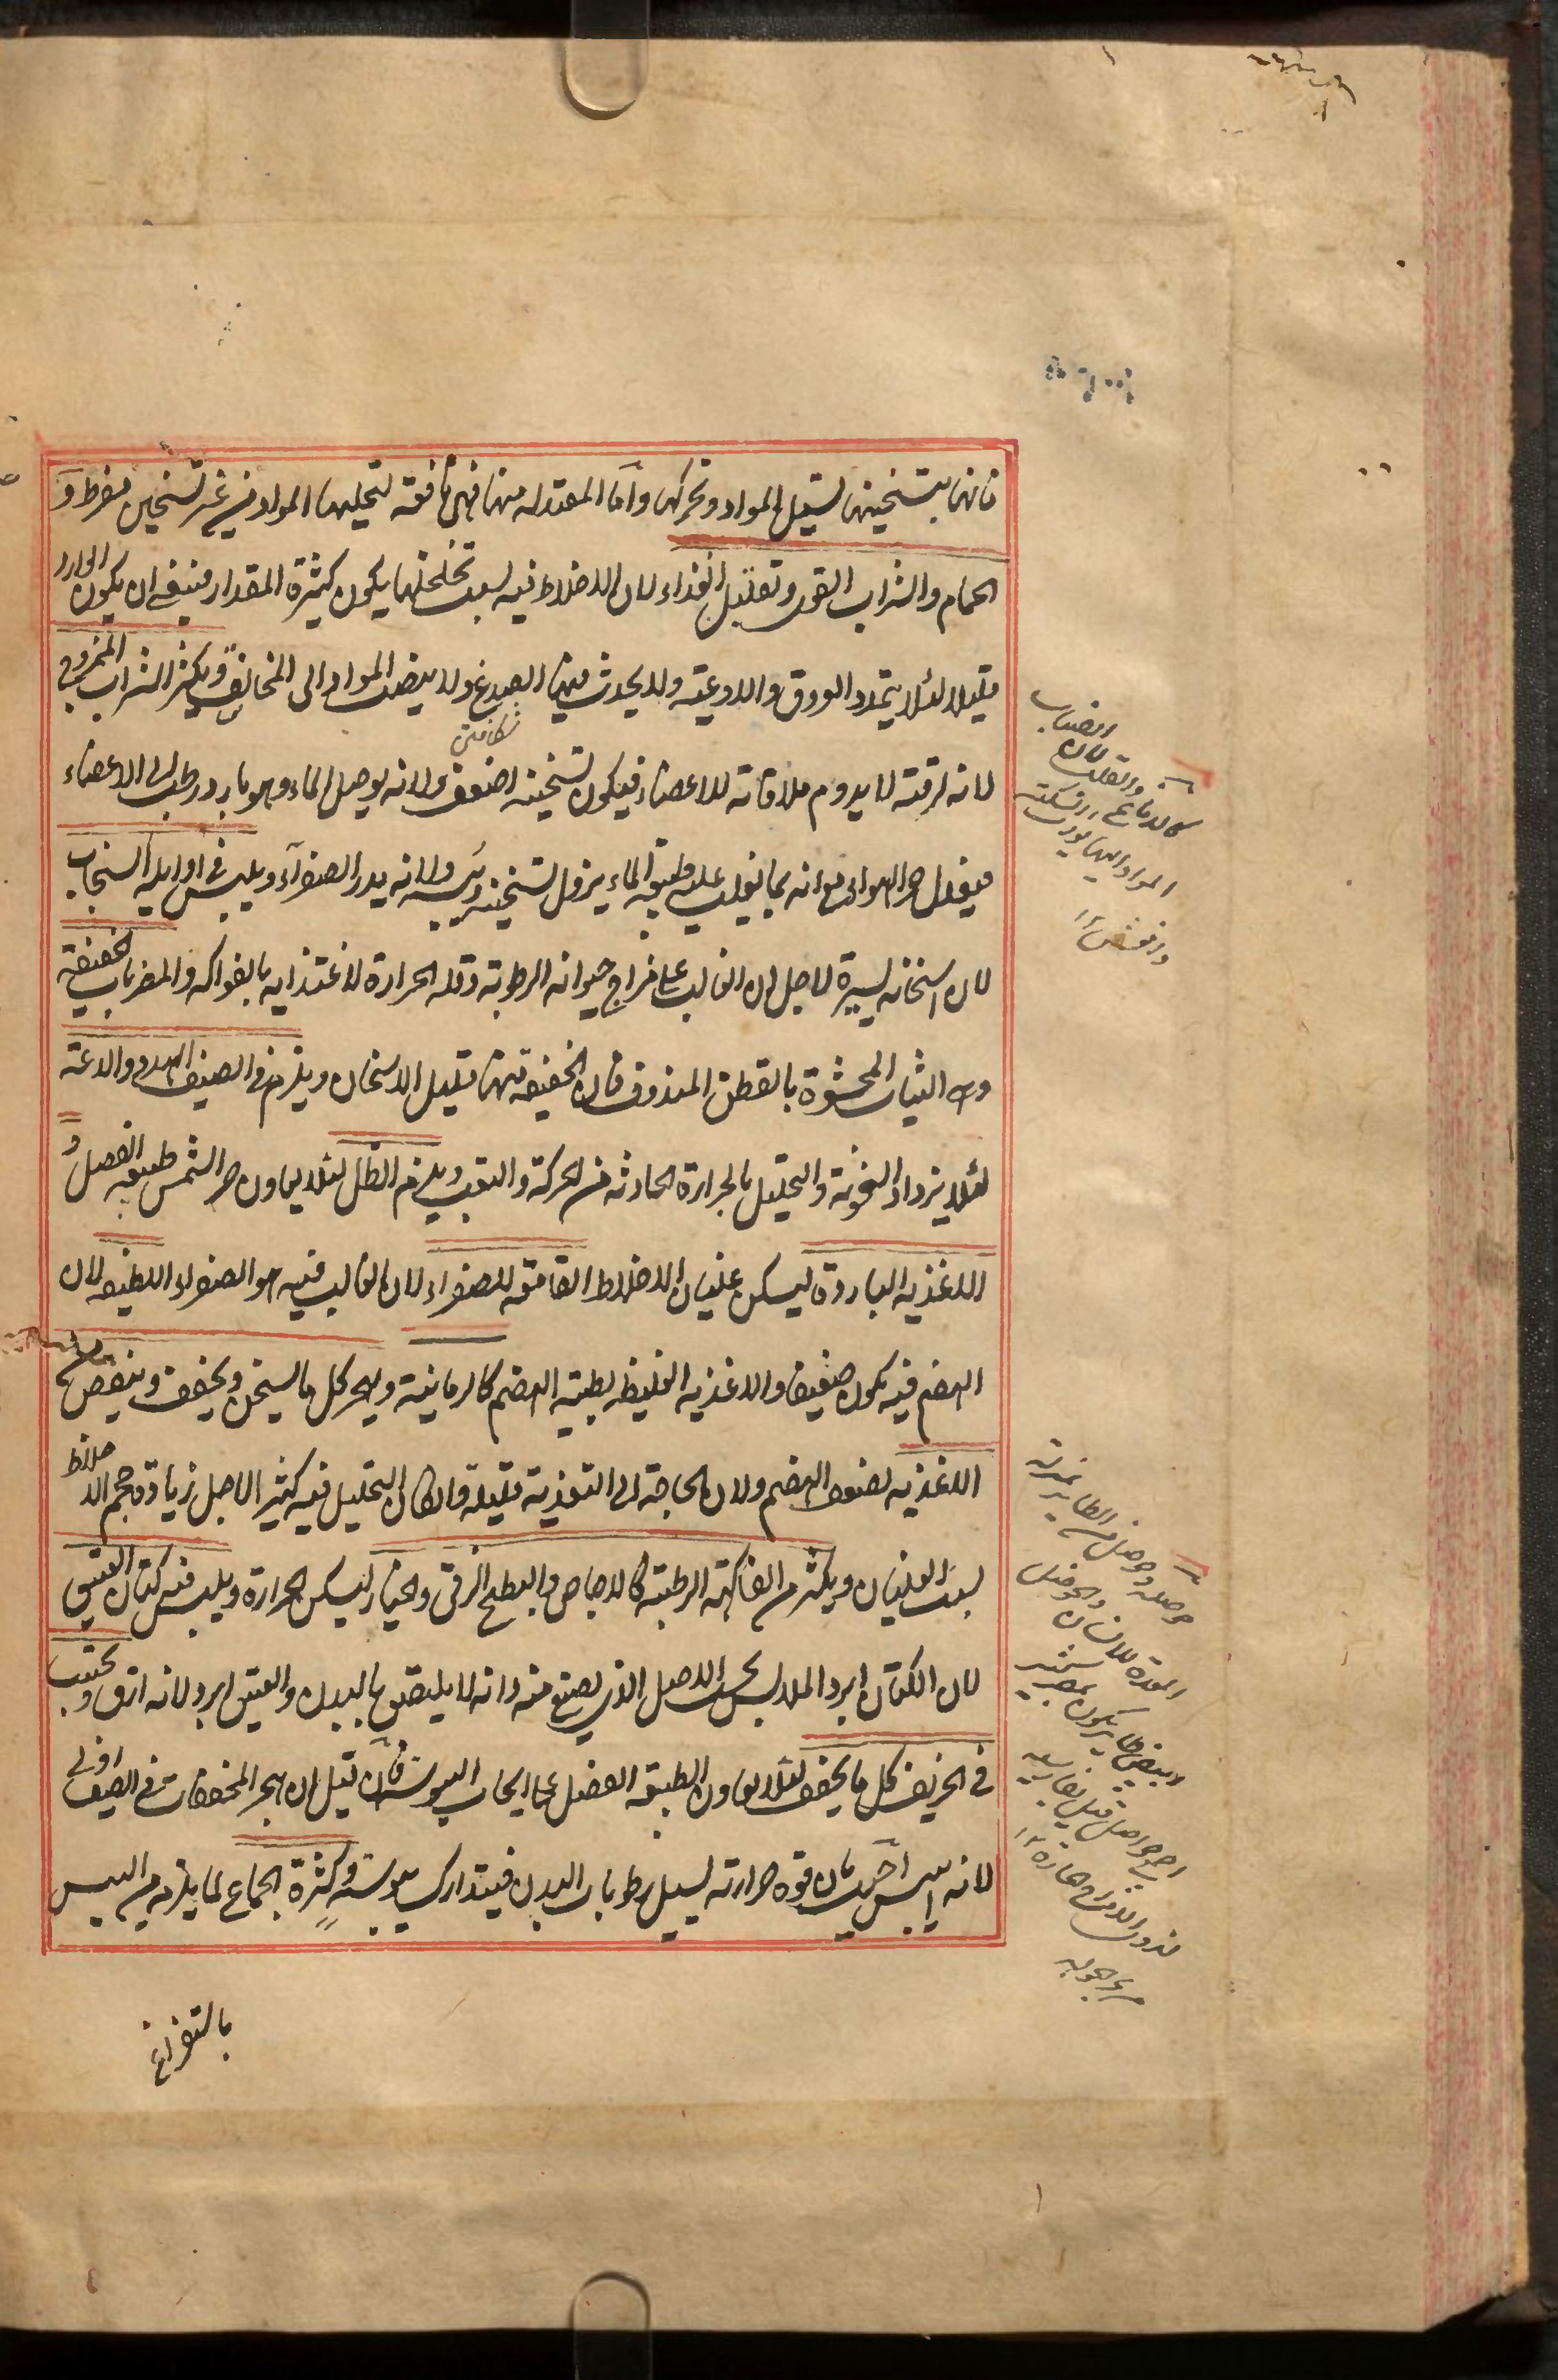 فانها بتسخينها تسيل المواد وتحركها واما المعتدلة منها فهى نافعة لتحليلها المواد من غير تسخين مفرط و
الحمام والشراب القوى وتقليل الغذاء لان الاخلاط فيه بسبب تخلخلها يكون كثيرة المقدار فينبغى ان يكون الوارد
قليلا لئلا يتمدد العروق والاوعية ولا يحدث فيها الصدع ولا ينصب المواد الى المخانق ويكثر الشراب الممزوج
لانه لرقته لا يدوم ملاقاته للاعضاء فيكون تسخينه اضعف ولانه يوصل الماء وهو بارد رطب الى الاعضاء
فيعدل حر الهواء مع انه بما يغلب عليه طبيعة الماء يزول تسخينه ويبسه ولانه يدر الصفراء ويلبس فى اوايله السنجاب
لان اسخانه يسيرة لاجل ان الغالب على مزاج حيوانه الرطوبة وقلة الحرارة لاغتذايه بالفواكه والمضربات الخفيفة
وهى الثياب المحشوة بالقطن المندوف فان الخفيفة منها قليل الاسخان ويلزم فى الصيف الهدو والدعة
لئلا يزداد السخونة والتحليل بالحرارة الحادثة من الحركة والتعب ويلزم الظل لئلا يعاون حر الشمس طبيعة الفصل و
الاغذية الباردة ليسكن غليان الاخلاط القامعة للصفراء لان الغالب فيه هو الصفراء اللطيفة لان
الهضم فيه يكون ضعيفا والاغذية الغليظة بطيئة الهضم كالرمانية ويهجر كل ما يسخن ويجفف وينقص من
الاغذية لضعف الهضم ولان الحاجة الى التغذية قليلة وان كان التحليل فيه كثيرا لاجل زيادة حجم الاخلاط
بسبب الغليان ويكثر من الفاكهة الرطبة كالاجاص والبطيخ الرقى والخيار ليسكن الحرارة ويلبس فيه كتان العتيق
لان الكتان ابرد الملابس بحسب الاصل الذى يصنع منه وانه لا يلتصق بالبدن والعتيق ابرد لانه ارق ويجتنب
فى الخريف كل ما يجفف لئلا يعاون الطبيعة الفصل على ايجاب اليبوسة فان قيل ان هجر المجففات فى الصيف اولى
لانه ايبس اجيب بان قوة حرارته تسيل رطوبات البدن فيتدارك يبوسته وكثرة الجماع لما يلزمه من اليبس
بالتفراغ
انصباب
لان
كالدماغ والقلب
المواد اليها
حوصلة وحوصل من الطاير بمنزلة
المعدة للانسان والحوصل
ابيض